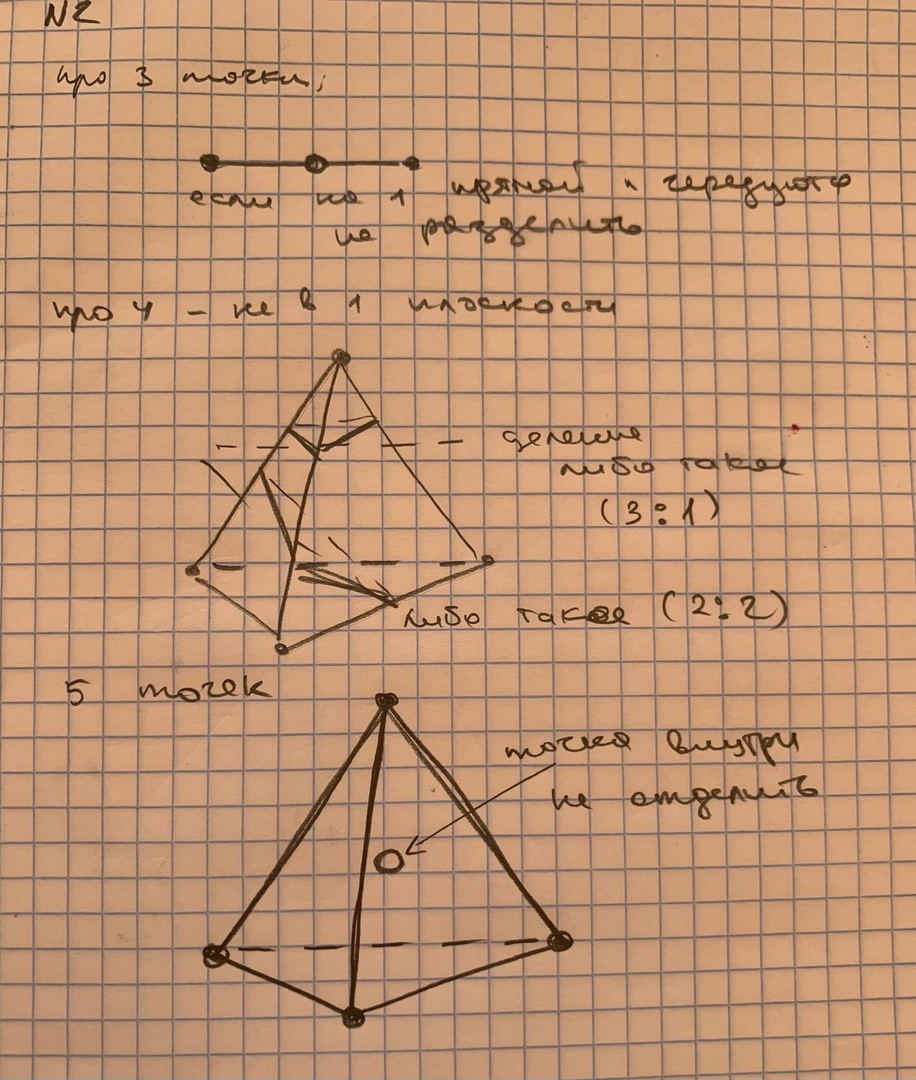 N2
про 3 точки;
если на 1 прямой и чередуются
не разделить
про 4 – не в 1 плоскости
деление
либо такое
(3:1)
либо такое (2:2)
5 точек
точка внутри
не отделить